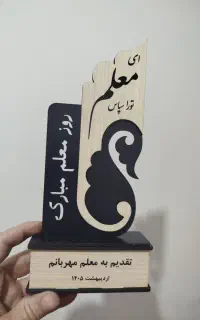 ای
معلم
تورا سپاس
روز معلم مبارک
تقدیم به معلم مهربانم
اردیبهشت ۱۴۰۵